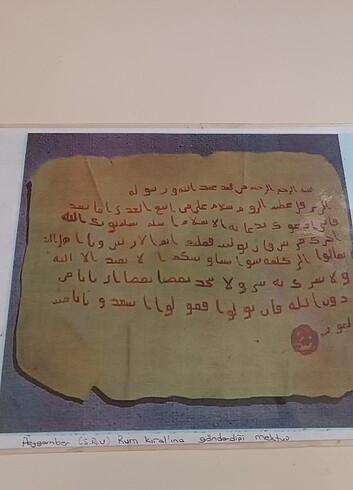 الرحمن الرحيم من محمد عبد الله ورسوله
عظيم الروم سلام على من اتبع الهدى اما بعد
فاني ادعوك بدعاية الاسلام اسلم تسلم يوتك الله
اجرك مرتين فان توليت فعليك اثم ويا اهل
تعالوا الى كلمة سوا بيننا وبينكم الا نعبد الا الله
ولا نشرك به ولا يتخذ بعضنا بعضا اربابا من
دون الله فان تولوا فقولوا اشهدوا بانا
Peygamber (S.A.V) Rum kıral'ına gönderdiği mektup